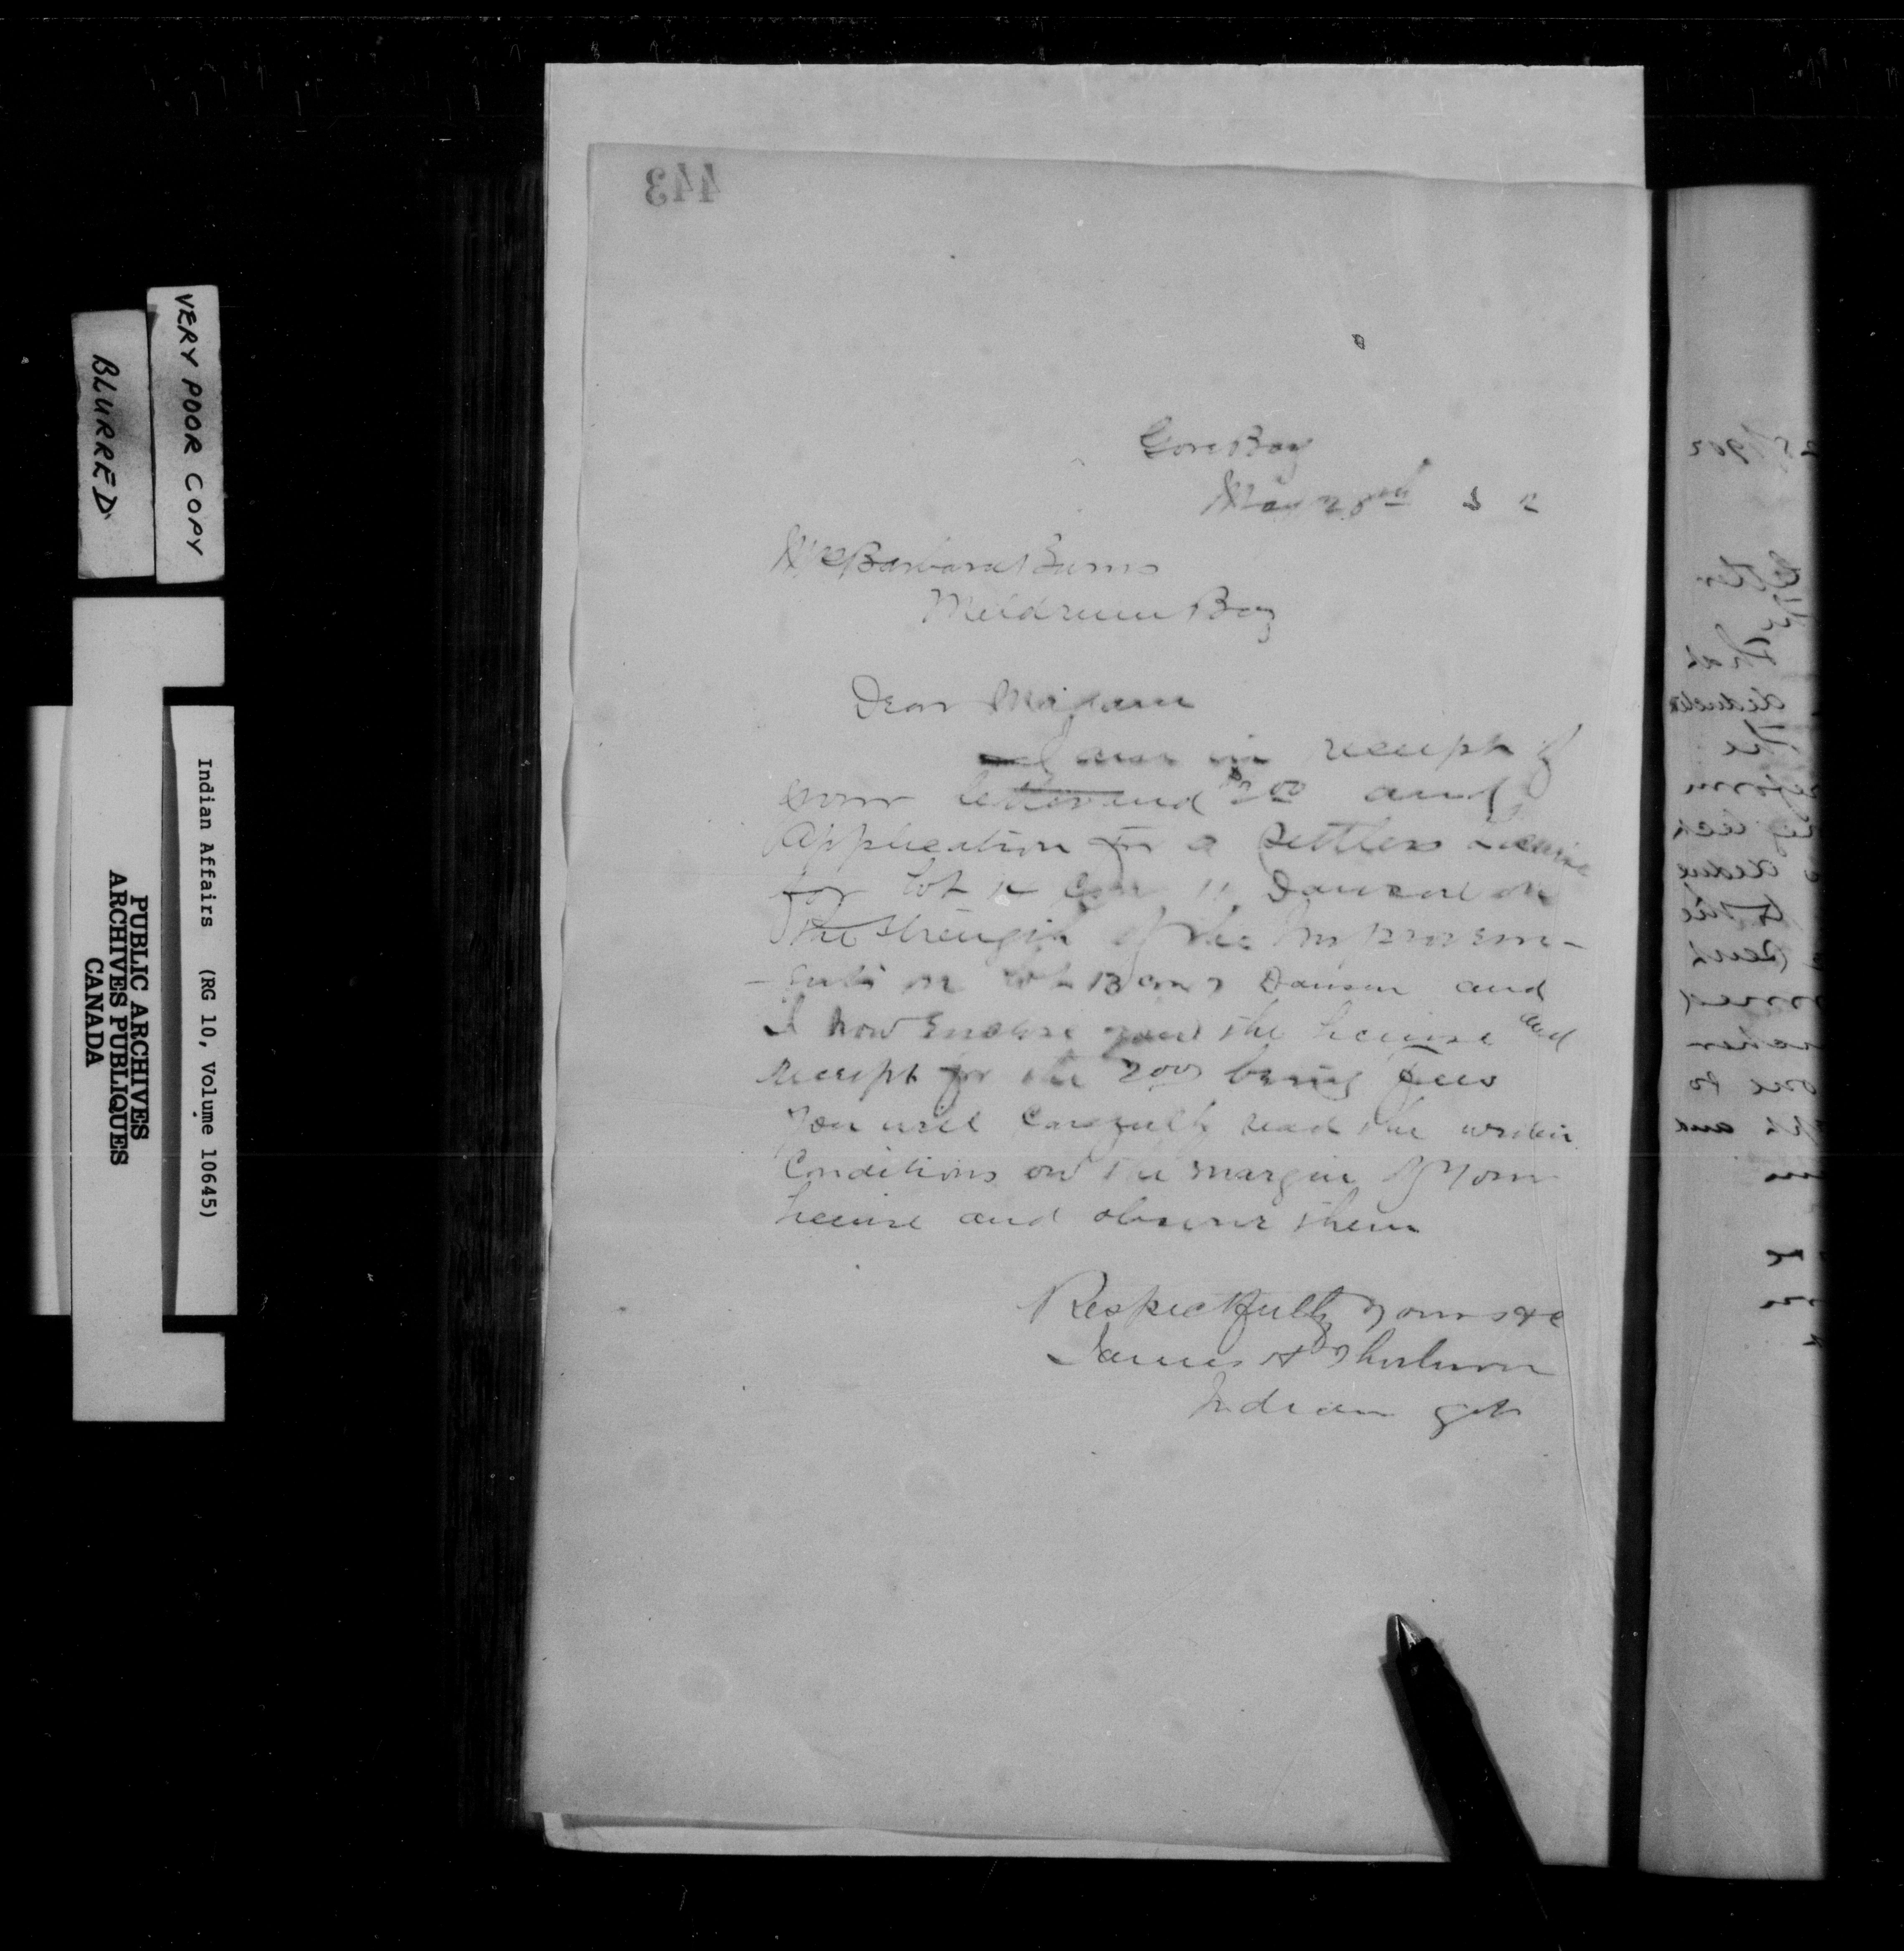 443
Gore Bay
May
Mrs Barbara Burns
Meldrum Bay
Dear Madam
I am in receipt of
your letter and $2.00 and
Application for a Settlers License
for Lot Con 11 Dawson on
the strength of the Improvem-
-ents on Lot 13 Con Dawson and
I now Enclose you the license and
receipt for the 2.00 being fees
You will Carefully read the written
Conditions on the margin of Your
license and observe them
Respectfully Yours &c
James H Thorburn
Indian Agt
VERY POOR COPY
BLURRED
Indian Affairs (RG 10, Volume 10645)
PUBLIC ARCHIVES
ARCHIVES PUBLIQUES
CANADA